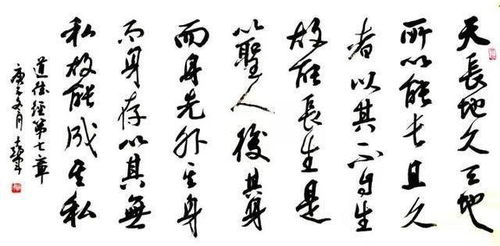 天長地久天地
所以能长且久
者以其不自生
故能長生是
以聖人後其身
而身先外其身
而身存以其無
私故能成其私
道德經第七章